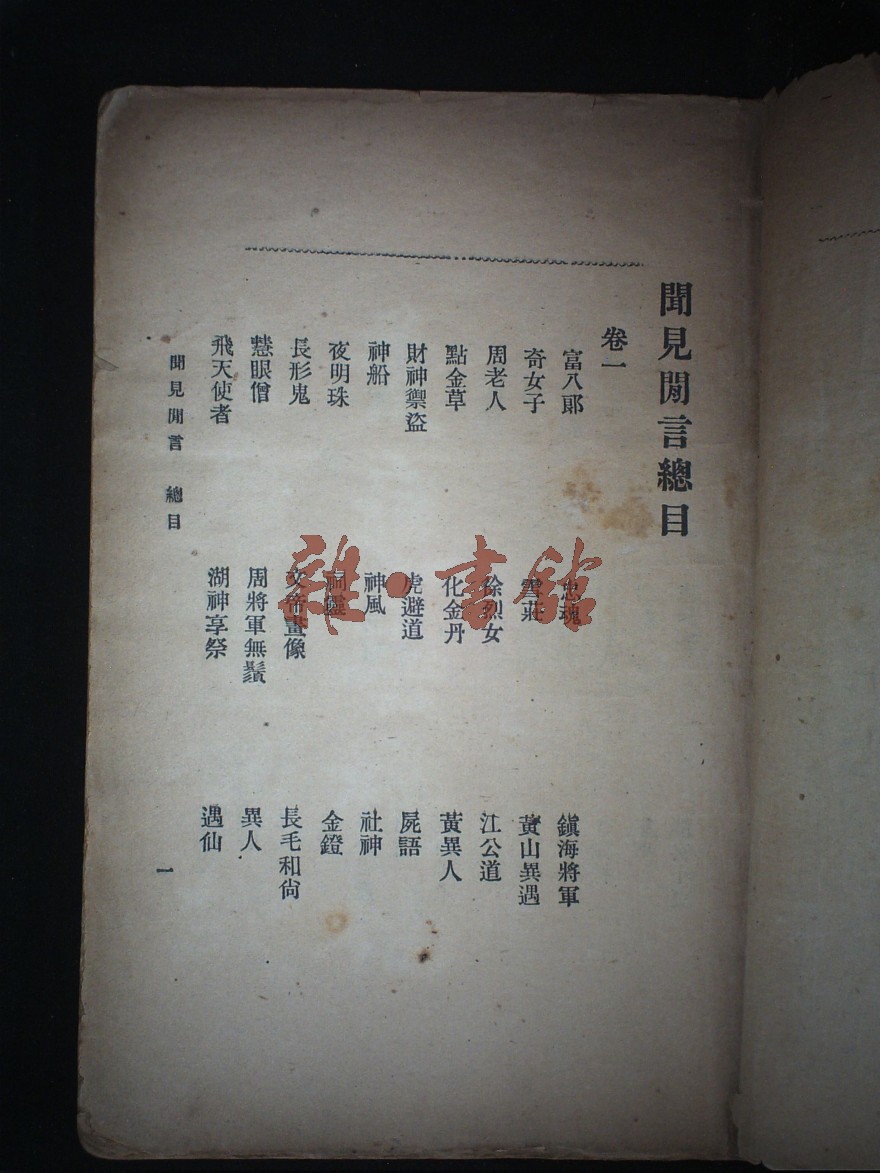 聞見閒言總目
卷一
富八郞 忠魂 鎭海將軍
奇女子 雪莊 黃山異遇
周老人 徐烈女 江公道
點金草 化金丹 黃異人
財神禦盜 虎避道 屍語
神船 神風 社神
夜明珠 祠靈 金鐙
長形鬼 文帝畫像 長毛和尙
慧眼僧 周將軍無鬚 異人
飛天使者 湖神享祭 遇仙
聞見閒言 總目 一
雜·書館